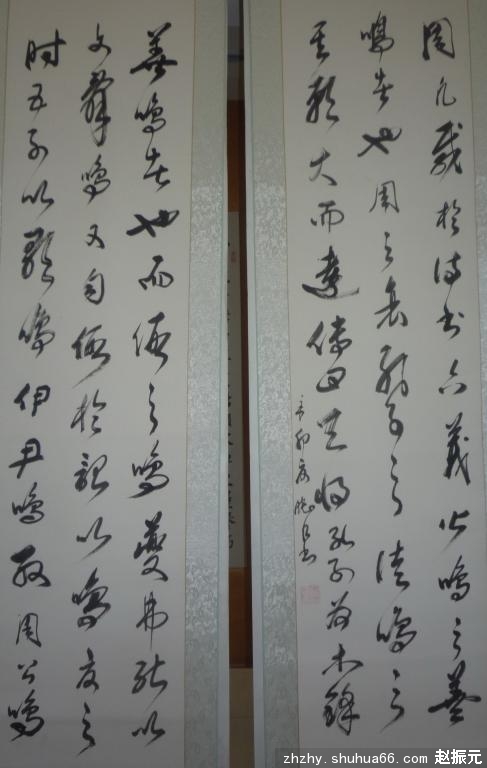 善鸣者也而假之鸣夔弗能以
文辞鸣又自假於韶以鸣夏之
时五子以歌鸣伊尹鸣殷周公鸣
周凡载於诗书六義皆鸣之善
鸣者也周之衰孔子之徒鸣之
其声大而远传曰天将孔子为木铎
辛卯
zhzhy.shuhua66.com 赵振元